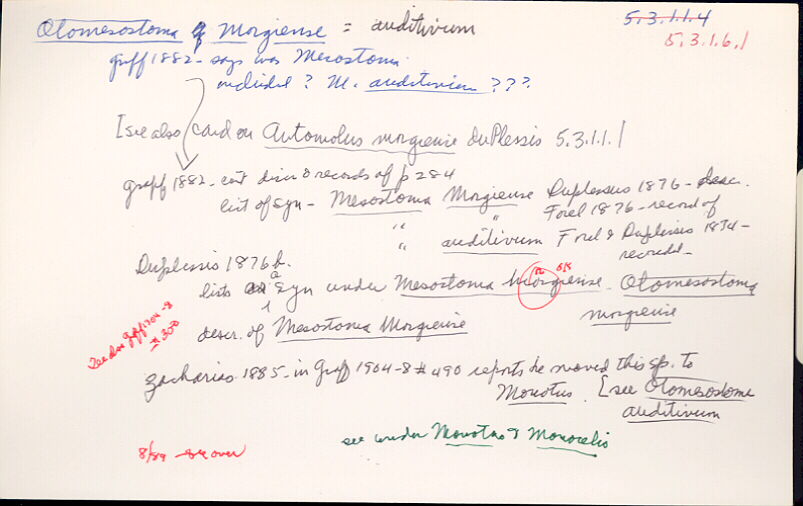 5.3.1.1.4
Otomesostoma Morgiense = auditivum
5.3.1.6.1
graff 1882 - says was Mesostoma
M. auditivum ???
[see also card on Automolus morgiense duPlessis 5.3.1.1.1
graff 1882 - records of p 284
list of syn - Mesostoma Morgiense Duplessis 1876 - descr.
" " Forel 1876 - record of
" auditivum Forel & Duplessis 1874 -
recorded -
Duplessis 1876 b.
lists a syn under Mesostoma Morgiense. Otomesostoma
morgiense
descr. of Mesostoma Morgiense
See also graff 1904-8
# 300
Zacharias 1885 - in Graff 1904-8 # 490 reports he moved this sp. to
Monotus. [see Otomesostoma
auditivum
see under Monotus & Monocelis
8/89 see over